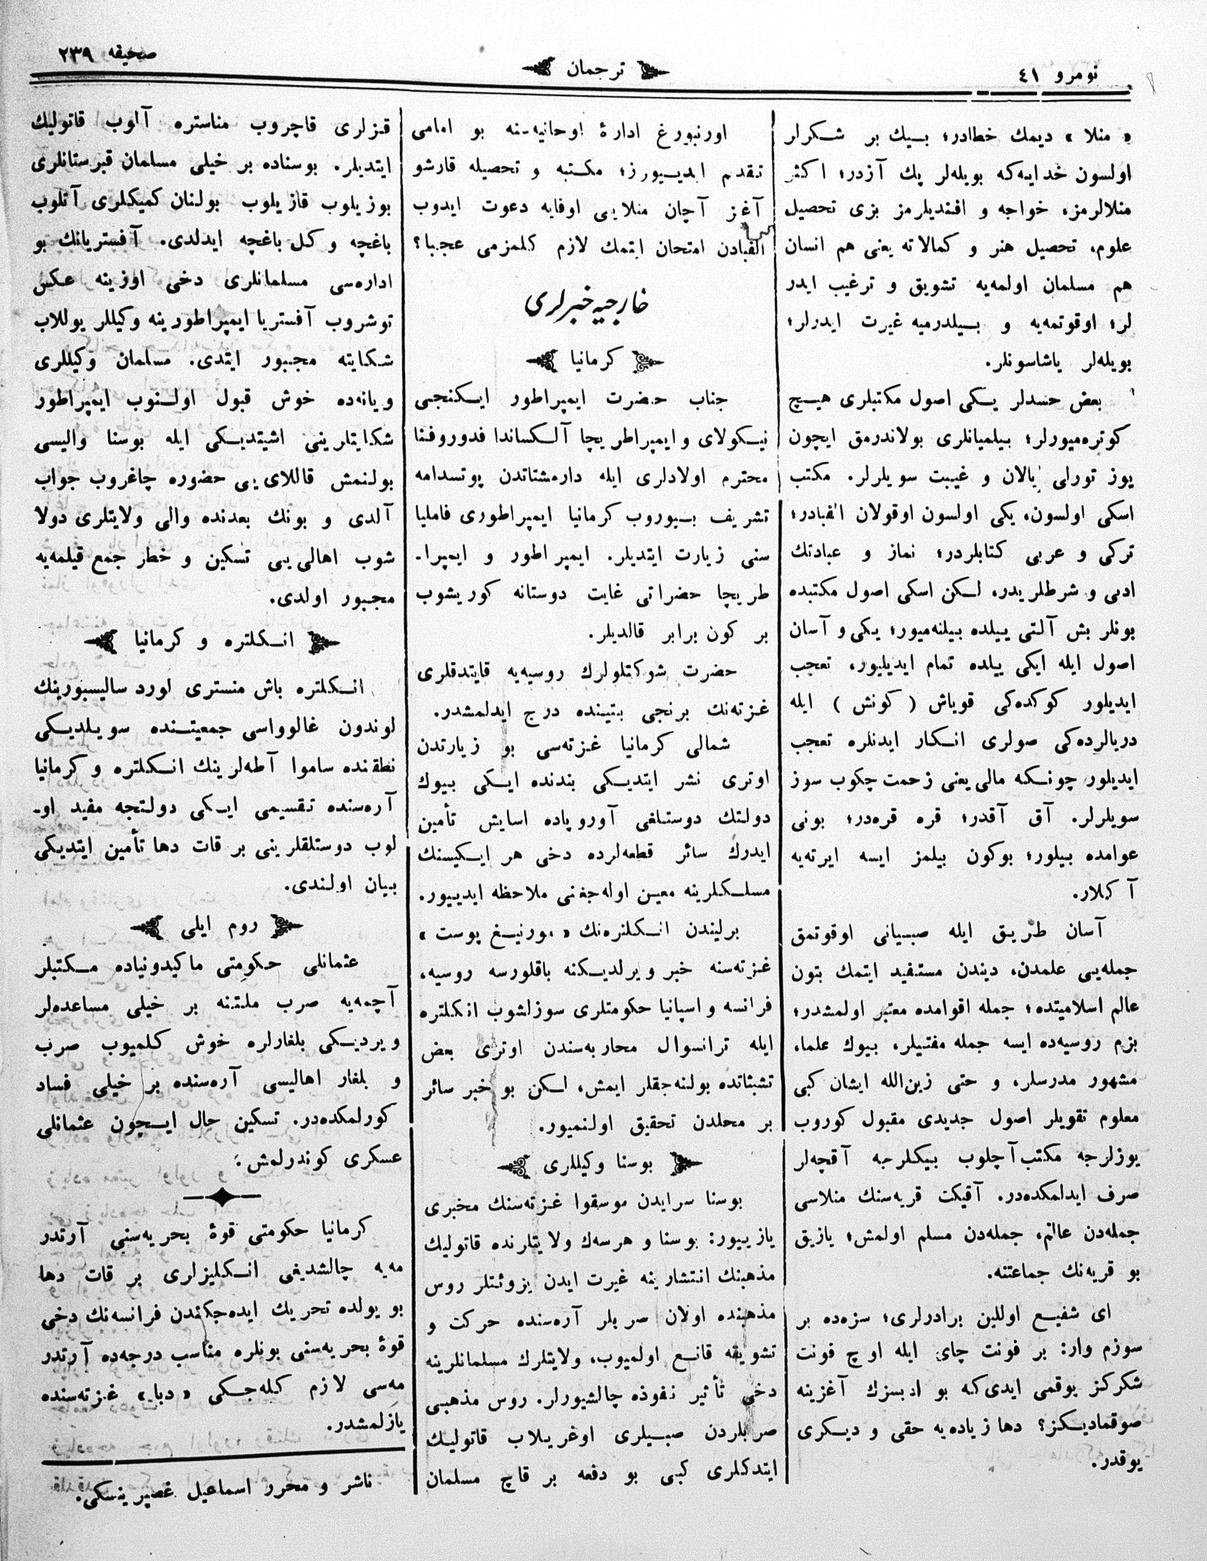 نومرو ٤١
ترجمان
صحيفه ٢٣٩
« منلا » ديمك خطادر؛ بيك بر شكرلر
اولسون خدايه‌كه بويله‌لر پك آزدر؛ اكثر
منلالرمز، خواجه و افنديلرمز بزى تحصيل
علوم، تحصيل هنر و كمالاته يعنى هم انسان
هم مسلمان اولمه‌يه تشويق و ترغيب ايدر
لر؛ اوقوتمه‌يه و بيلدرميه غيرت ايدرلر؛
بويله‌لر ياشاسونلر.
بعض حسدلر يكى اصول مكتبلرى هيچ
كوتره‌ميورلر؛ بيلميانلرى بولاندرمق ايچون
يوز تورلى يالان و غيبت سويلرلر. مكتب
اسكى اولسون، يكى اولسون اوقولان الفبادر؛
تركى و عربى كتابلردر؛ نماز و عبادتك
ادبى و شرطلريدر، لكن اسكى اصول مكتبده
بونلر بش آلتى ييلده بيلنه‌ميور؛ يكى و آسان
اصول ايله ايكى ييلده تمام ايديليور، تعجب
ايديلور كوكده‌كى قوياش ( كونش ) ايله
دريالرده‌كى صولرى انكار ايدنلره تعجب
ايديلور چونكه مالى يعنى زحمت چكوب سوز
سويلرلر. آق آقدر؛ قره قره‌در؛ بونى
عوامده بيلور؛ بوكون بيلمز ايسه ايرته‌يه
آكلار.
آسان طريق ايله صبيانى اوقوتمق
جمله‌يى علمدن، ديندن مستفيد ايتمك بتون
عالم اسلاميتده؛ جمله اقوامده معتبر اولمشدر؛
بزم روسيه‌ده ايسه جمله مفتيلر، بيوك علما،
مشهور مدرسلر، و حتى زين‌الله ايشان كبى
معلوم تقويلر اصول جديدى مقبول كوروب
يوزلرجه مكتب آچلوب بيكلرجه آقچه‌لر
صرف ايدلمكده‌در. آقيكت قريه‌سنك منلاسى
جمله‌دن عالم، جمله‌دن مسلم اولمش؛ يازيق
بو قريه‌نك جماعتنه.
اى شفيع اوللين برادرلرى؛ سزه‌ده بر
سوزم وار: بر فونت چاى ايله اوچ فونت
شكركز يوقمى ايدى‌كه بو ادبسزك آغزينه
صوقماديكز؟ دها زياده‌يه حقى و ديكرى
يوقدر.
اورنبورغ ادارۀ اوحانيه‌سنه بو امامى
تقدم ايدييورز؛ مكتبه و تحصيله قارشو
آغز آچان منلايى اوفايه دعوت ايدوب
الفبادن امتحان ايتمك لازم كلمزمى عجبا؟
خارجيه خبرلرى
كرمانيا
جناب حضرت ايمپراطور ايكنجى
نيكولاى و ايمپراطريچا آلكساندا فدوروفنا
محترم اولادلرى ايله دارمشتاتدن پوتسدامه
تشريف بيوروب كرمانيا ايمپراطورى فاميليا
سنى زيارت ايتديلر. ايمپراطور و ايمپرا-
طريچا حضراتى غايت دوستانه كوريشوب
بر كون برابر قالديلر.
حضرت شوكتلولرك روسيه‌يه قايتدقلرى
غزته‌نك برنجى بتينده درج ايدلمشدر.
شمالى كرمانيا غزته‌سى بو زيارتدن
اوترى نشر ايتديكى بندنده ايكى بيوك
دولتك دوستلغى آوروپاده اسايش تأمين
ايدرك سائر قطعه‌لرده دخى هر ايكيسنك
مسلكلرينه معين اوله‌جغنى ملاحظه ايدييور.
برليندن انكلتره‌نك « مورنيغ پوست »
غزته‌سنه خبر ويرلديكنه باقلورسه روسيه،
فرانسه و اسپانيا حكومتلرى سوزلشوب انكلتره
ايله ترانسوال محاربه‌سندن اوترى بعض
تشبثاتده بولنه‌جقلر ايمش، لكن بو خبر سائر
بر محلدن تحقيق اولنميور.
بوسنا وكيللرى
بوسنا سرايدن موسقوا غزته‌سنك مخبرى
يازييور: بوسنا و هرسك ولايتلرنده قاتوليك
مذهبنك انتشارينه غيرت ايدن يزوئتلر روس
مذهبنده اولان صربلر آره‌سنده حركت و
تشويقه قانع اولميوب، ولايتلرك مسلمانلرينه
دخى تأثير نفوذه چالشيورلر. روس مذهبى
صربلردن صبيلرى اوغريلاب قاتوليك
ايتدكلرى كبى بو دفعه بر قاچ مسلمان
قزلرى قاچروب مناستره آلوب قاتوليك
ايتديلر. بوسناده بر خيلى مسلمان قبرستانلرى
بوزيلوب قازيلوب بولنان كميكلرى آتلوب
باغچه و كل باغچه ايدلدى. آفستريانك بو
اداره‌سى مسلمانلرى دخى اوزينه عكس
توشروب آفستريا ايمپراطورينه وكيللر يوللاب
شكايته مجبور ايتدى. مسلمان وكيللرى
ويانه‌ده خوش قبول اولنوب ايمپراطور
شكايتلرينى اشيتديكى ايله بوسنا واليسى
بولنمش قاللاى‌يى حضوره چاغروب جواب
آلدى و بونك بعدنده والى ولايتلرى دولا
شوب اهالى‌يى تسكين و خطر جمع قيلمه‌يه
مجبور اولدى.
انكلتره و كرمانيا
انكلتره باش منسترى لورد ساليسبورينك
لوندون غالوواسى جمعيتنده سويلديكى
نطقنده ساموا آطه‌لرينك انكلتره و كرمانيا
آره‌سنده تقسيمى ايكى دولتجه مفيد او-
لوب دوستلقلرينى بر قات دها تأمين ايتديكى
بيان اولندى.
روم ايلى
عثمانلى حكومتى ماكيدونياده مكتبلر
آچمه‌يه صرب ملتنه بر خيلى مساعده‌لر
ويرديكى بلغارلره خوش كلميوب صرب
و بلغار اهاليسى آره‌سنده بر خيلى فساد
كورلمكده‌در. تسكين حال ايچون عثمانلى
عسكرى كوندرلمش.
كرمانيا حكومتى قوۀ بحريه‌سنى آرتدر
مه‌يه چالشديغى انكليزلرى بر قات دها
بو يولده تحريك ايده‌جكندن فرانسه‌نك دخى
قوۀ بحريه‌سنى بونلره مناسب درجه‌ده آرتدر
مه‌سى لازم كله‌جكى «دبا» غزته‌سنده
يازلمشدر.
ناشر و محرر اسماعيل غصپرينسكى.